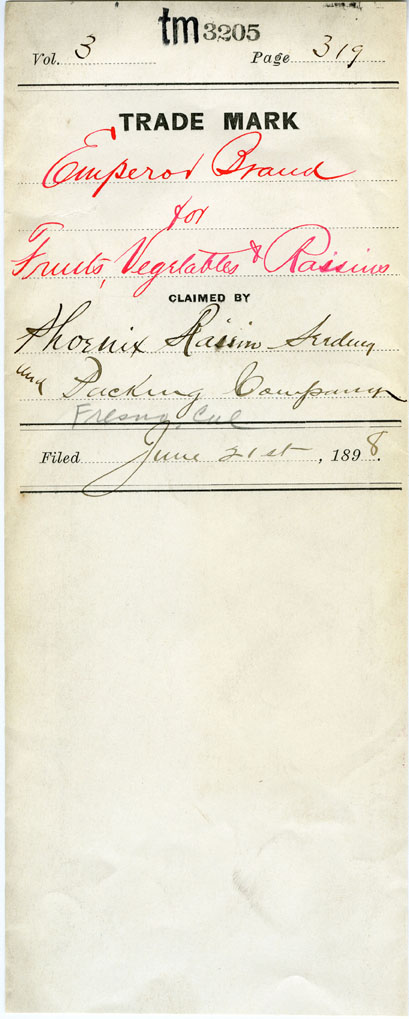 tm 3205
Vol. 3 Page 319
TRADE MARK
Emperor Brand
for
Fruits, Vegetables & Raisins
CLAIMED BY
Phoenix Raisin Seeding
and Packing Company
Fresno, Cal
Filed June 21st, 1898.